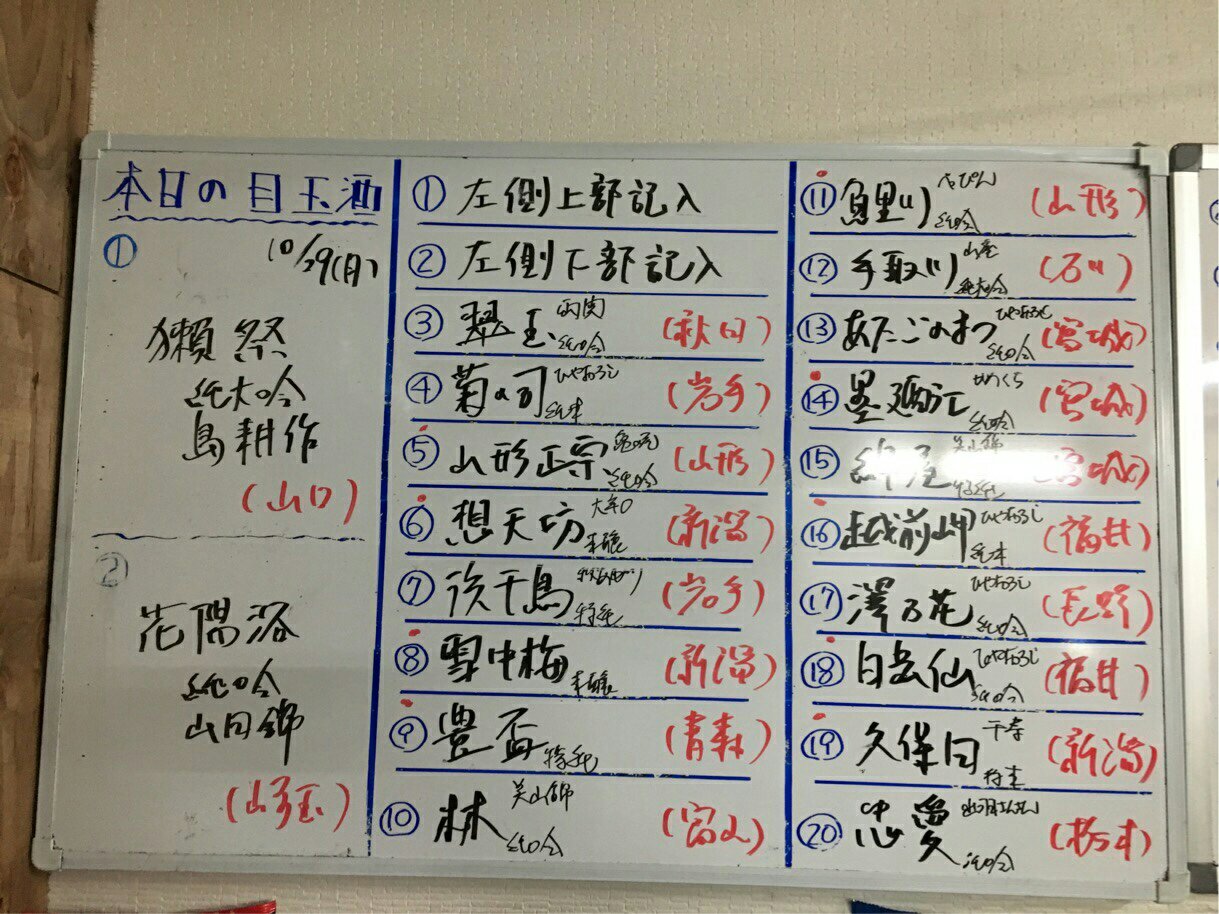 本日の目玉酒
①
10/29(月)
獺祭
純大吟
島耕作
(山口)
②
花陽浴
純吟
山田錦
(埼玉)
① 左側上部記入
② 左側下部記入
③ 翠玉 両関 純吟 (秋田)
④ 菊の司 ひやおろし 純米 (岩手)
⑤ 山形正宗 純吟 (山形)
⑥ 想天坊 大辛口 本醸 (新潟)
⑦ 浜千鳥 特純 (岩手)
⑧ 雪中梅 本醸 (新潟)
⑨ 豊盃 特純 (青森)
⑩ 林 美山錦 純吟 (富山)
⑪ 鯉川 べっぴん 純吟 (山形)
⑫ 手取川 山廃 純大吟 (石川)
⑬ あたごのまつ ひやおろし 純吟 (宮城)
⑭ 墨廼江 中くち 純吟 (宮城)
⑮ 綿屋 美山錦 特純 (宮城)
⑯ 越前岬 ひやおろし 純米 (福井)
⑰ 澤乃花 ひやおろし 純吟 (長野)
⑱ 白岳仙 ひやおろし 純吟 (福井)
⑲ 久保田 千寿 特本 (新潟)
⑳ 忠愛 純吟 (栃木)